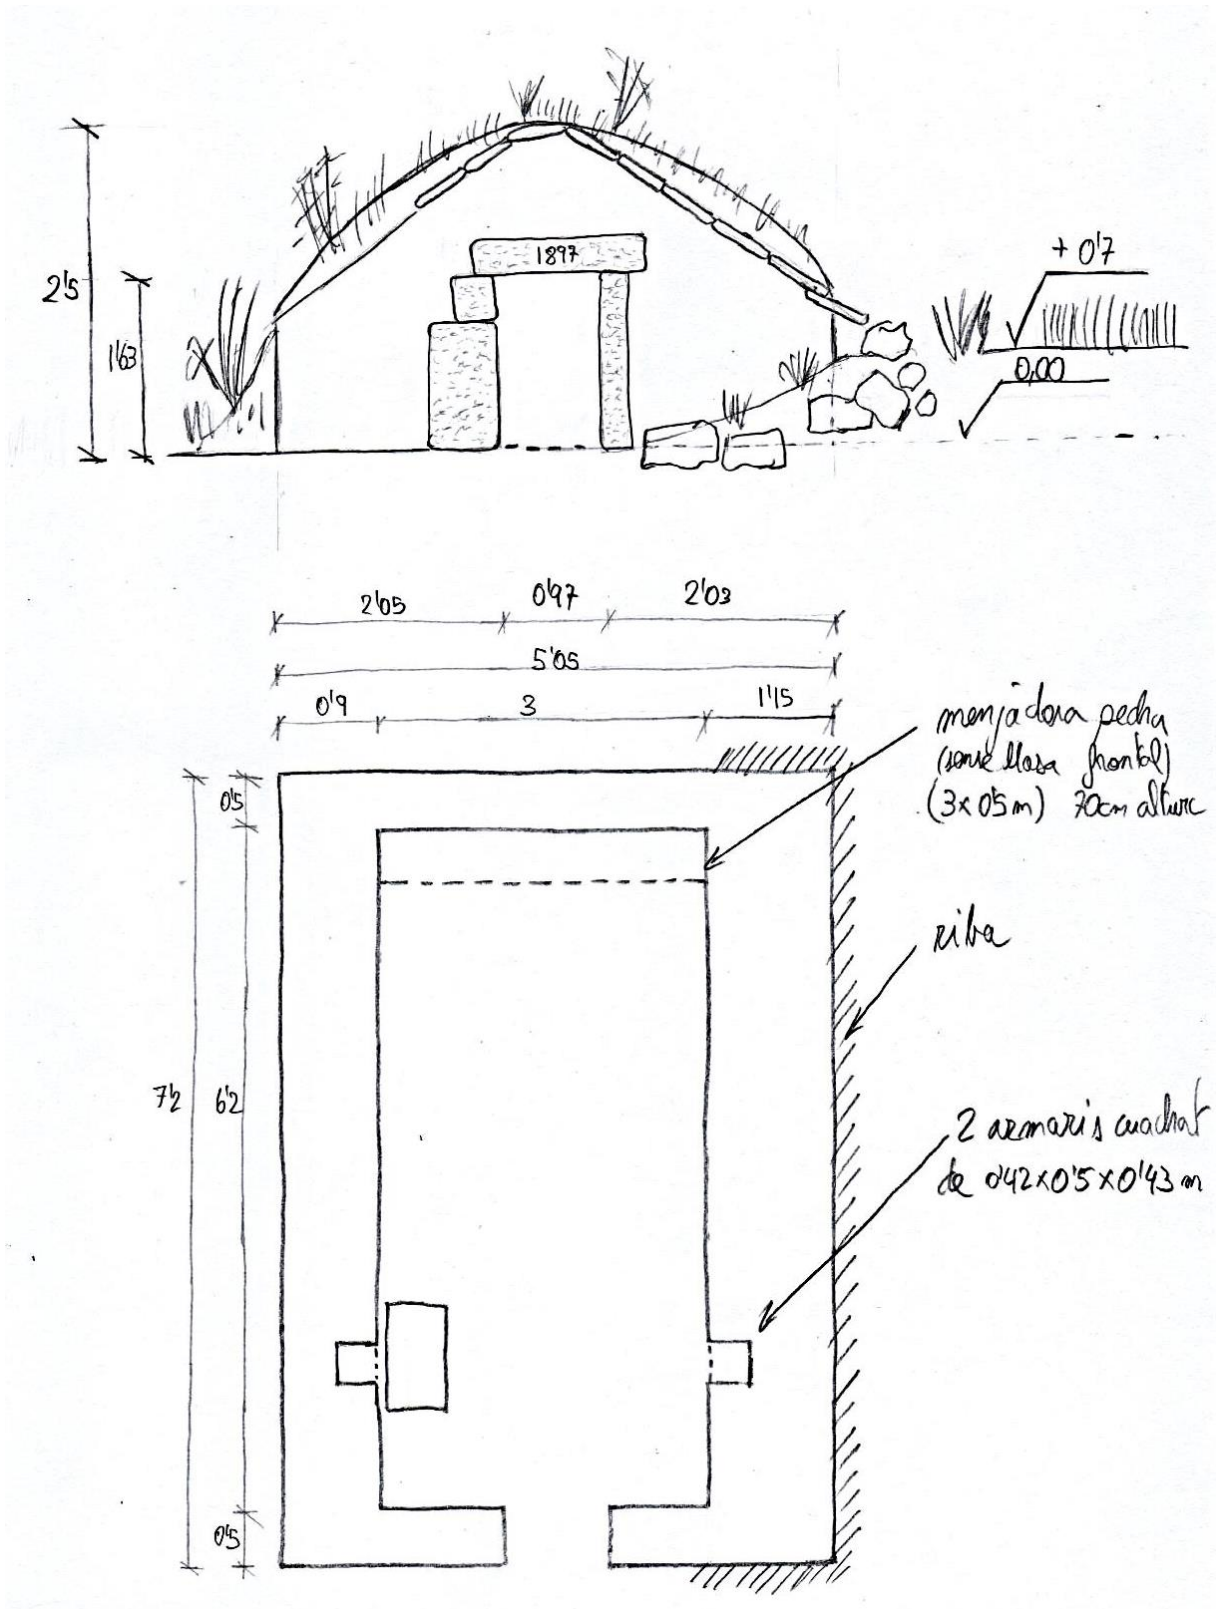 2'5
1'63
1897
+ 0'7
0,00
2'05
0'97
2'03
5'05
0'9
3
1'15
menjadora pedra
(sense llosa frontal)
(3x0'5m) 70cm altura
0'5
riba
7'2
6'2
2 armaris cuadrat
de 0'42x0'5x0'43 m
0'5